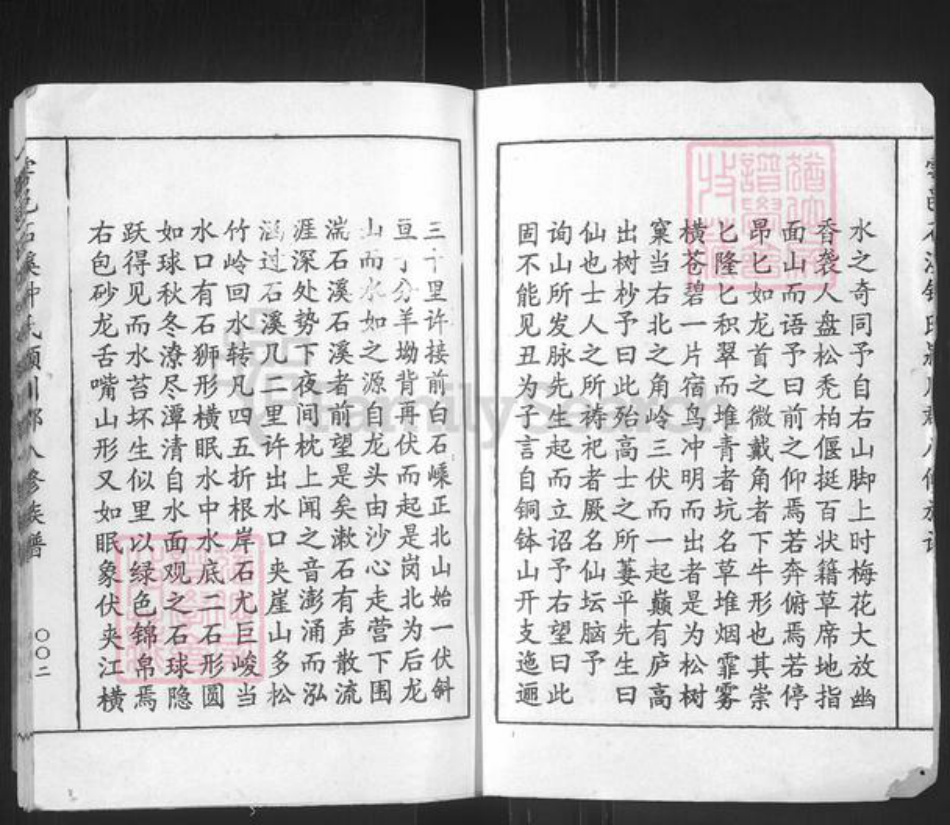 水之奇同予自右山脚上时梅花大放幽
香袭人盘松秃柏偃挺百状籍草席地指
面山而语予曰前之仰焉若奔俯焉若停
昂匕如龙首之微戴角者下牛形也其崇
匕隆匕积翠而堆青者坑名草堆烟霏雾
横苍碧一片宿鸟冲明而出者是为松树
窠当右北之角岭三伏而一起巅有庐高
出树杪予曰此殆高士之所萋平先生曰
仙也士人之所祷祀者厥名仙坛脑予
询山所发脉先生起而立诏予右望曰此
固不能见丑为子言自铜钵山开支迤逦
三十里许接前白石嵊正北山始一伏斜
亘于分羊坳背再伏而起是岗北为后龙
山而水如之源自龙头由沙心走营下围
湍石溪石溪者前望是矣漱石有声散流
涯深处势下夜间枕上闻之音澎涌而泓
涵过石溪几二里许出水口夹崖山多松
竹岭回水转凡四五折根岸石尤巨峻当
水口有石狮形横眠水中水底二石形圆
如球秋冬潦尽潭清自水面观之石球隐
跃得见而水苔坏生似里以绿色锦帛焉
右包砂龙舌嘴山形又如眠象伏夹江横
石溪钟氏颍川郡八修族谱
〇〇二
FamilySearch